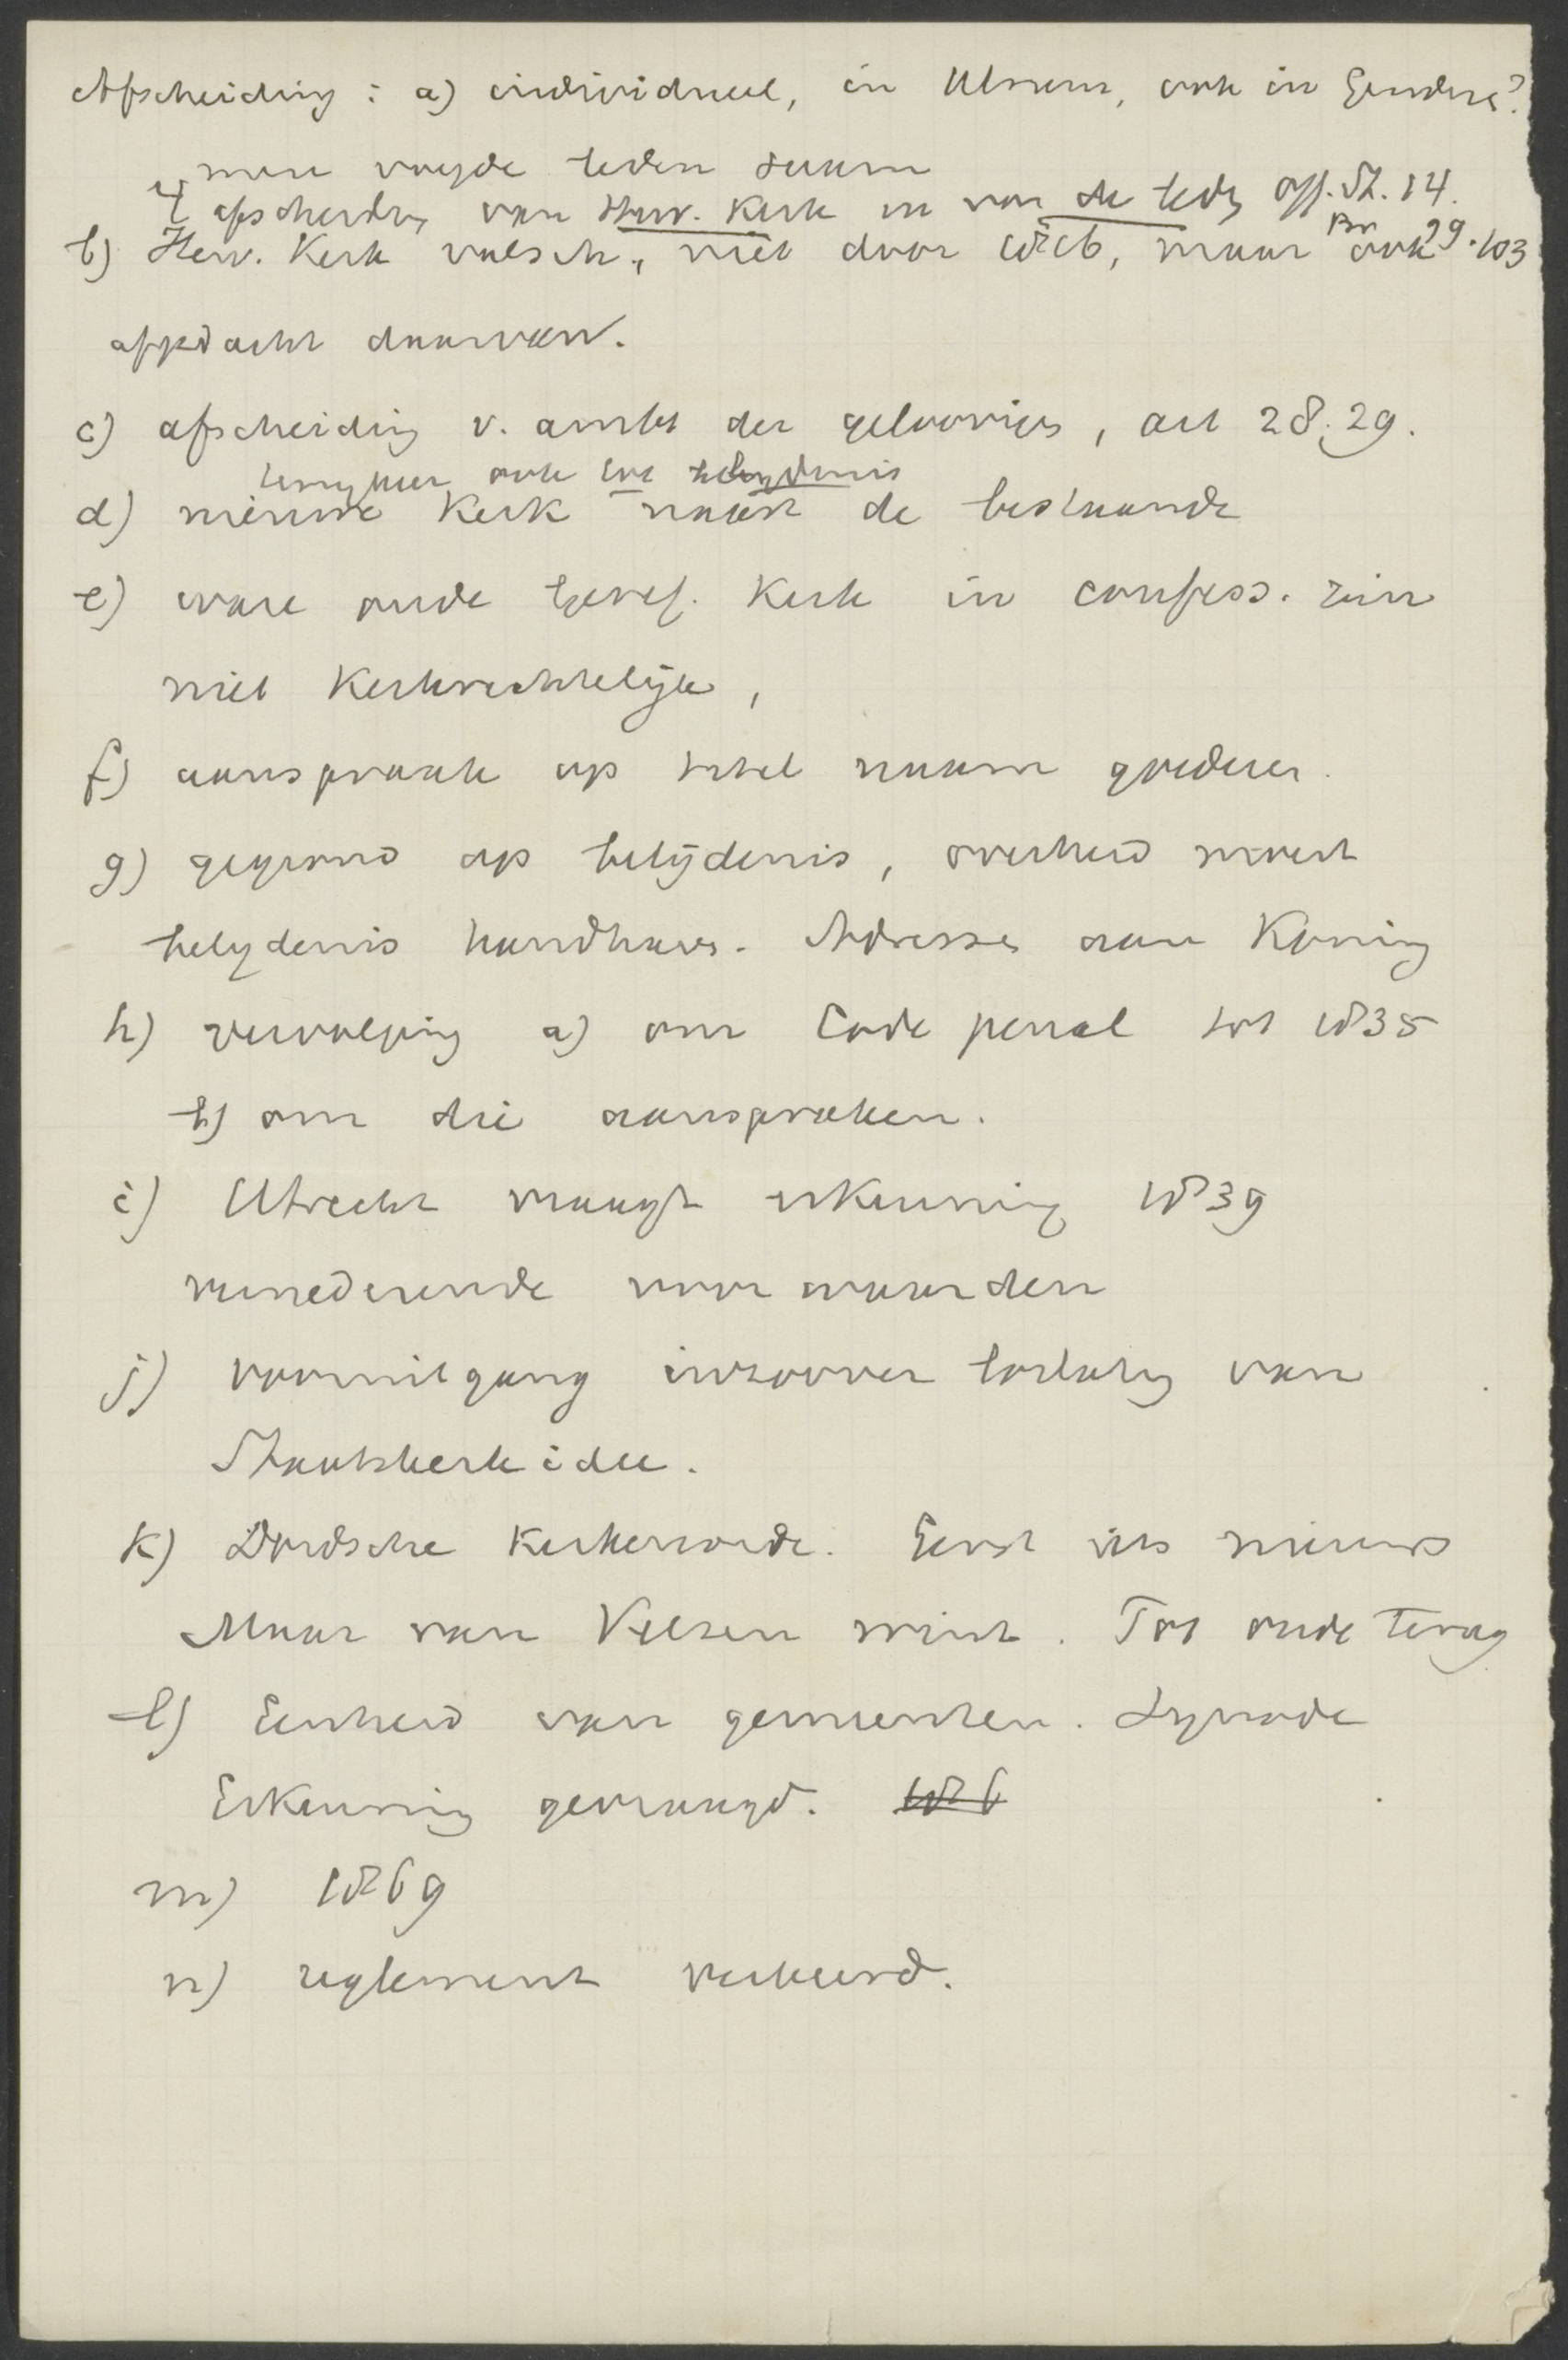 Afscheiding : a) individueel, in Ulrum, ook in Genderen?
men voegde leden saam
afscheiding van Herv. Kerk en van de leden Off. St. 14.
Br 99.103
b) Herv. Kerk valsch, niet door 1816, maar ook
afgedacht daarvan.
c) afscheiding v. ambt der geloovigen, art 28.29.
terugkeer ook tot belydenis
d) nieuwe Kerk naast de bestaande
e) ware oude Geref. Kerk in confess. zin
niet Kerkrechtelijk,
f) aanspraak op titel naam goederen.
g) gegrond op belijdenis, overheid moest
belydenis handhaven. Adressen aan Koning
h) vervolging a) om Code penal tot 1835
b) om die aanspraken.
i) Utrecht vraagt erkenning 1839
vernederende voorwaarden
j) vooruitgang inzoover loslating van
Staatskerkidee.
k) Dordsche Kerkenorde. Eerst iets nieuws
Maar van Velzen wint. Tot oude terug
l) Eenheid van gemeenten. Synode
Erkenning gevraagd. 186
m) 1869
n) reglement verkeerd.